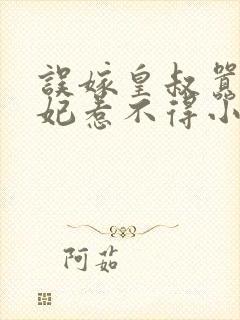 誤嫁皇叔
妃惹不得小
阿茹